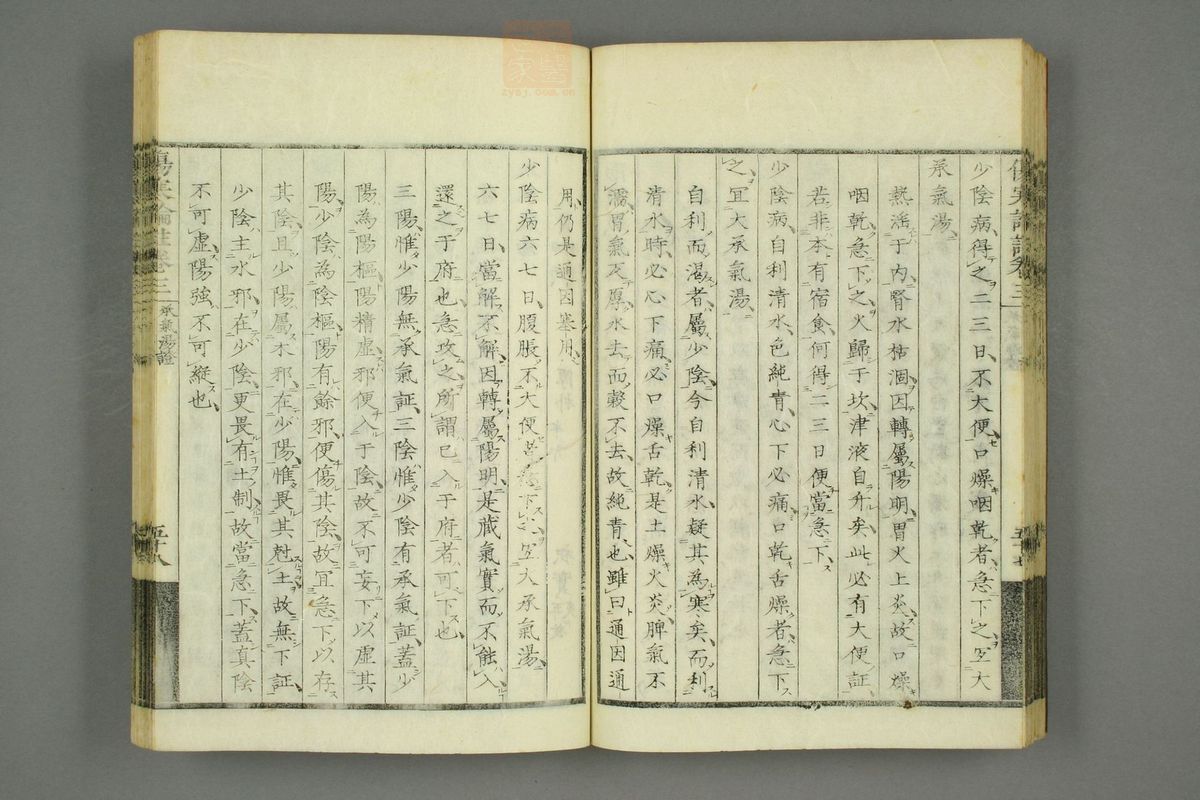 少陰病得之二三日不大便口燥咽乾者急下之宜大
承氣湯
熱淫于内腎水枯涸因轉屬陽明胃火上炎故口燥
咽乾急下之火歸于坎津液自升矣此必有大便証
若非本有宿食何得二三日便當急下
少陰病自利清水色純青心下必痛口乾舌燥者急下
之宜大承氣湯
自利而渴者屬少陰今自利清水疑其為寒矣而利
清水時必心下痛必口燥舌乾是土燥火炎脾氣不
濡胃氣反厚水去而穀不去故純青也雖曰通因通
五十七
用仍是通因塞用
少陰病六七日腹脹不大便者急下之宜大承氣湯
六七日當解不解因轉屬陽明是蔵氣實而不能入
還之于府也急攻之所謂已入于府者可下也
三陽惟少陽無承氣証三陰惟少陰有承氣証蓋少
陽為陽樞陽精虚邪便入于陰故不可妄下以虚其
陽少陰為陰樞陽有餘邪便傷其陰故宜急下以存
其陰且少陽屬木邪在少陽惟畏其尅土故無下証
少陰主水邪在少陰更畏有土制故當急下蓋真陰
不可虚陽強不可縱也
傷寒論註卷三 承氣湯證
五十八
zysj.com.cn